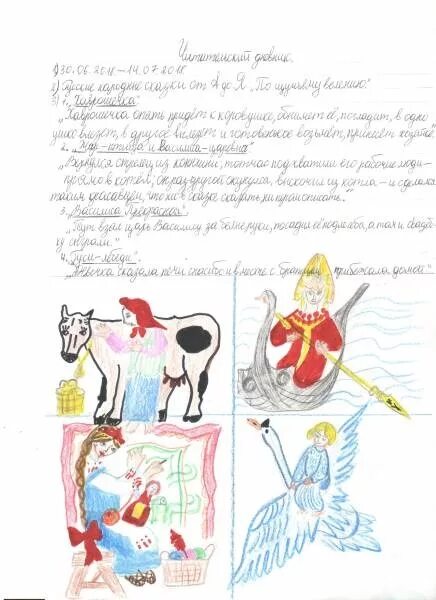 Читательский дневник.
1) 30.06.2018 – 14.07.2018
2) Русские народные сказки от А до Я „По щучьему велению"
3) 1. „Хаврошечка"
„Хаврошечка опять придёт к коровушке, обнимет её, погладит, в одно
ушко влезет, в другое вылезет и готовенькое возьмёт, принесёт хозяйке"
2. „Жар-птица и Василиса-царевна"
„Вернулся стрелец из конюшни; тотчас подхватили его рабочие люди –
прямо в котёл; он раз-другой окунулся, выскочил из котла – и сделался
таким красавцем, что ни в сказке сказать, ни пером описать."
3. „Василиса Прекрасная".
„Тут взял царь Василису за белые руки, посадил её подле себя, а там и свадеб-
ку сыграли."
4. „Гуси-лебеди".
„Девочка сказала печи спасибо и вместе с братцем прибежала домой"